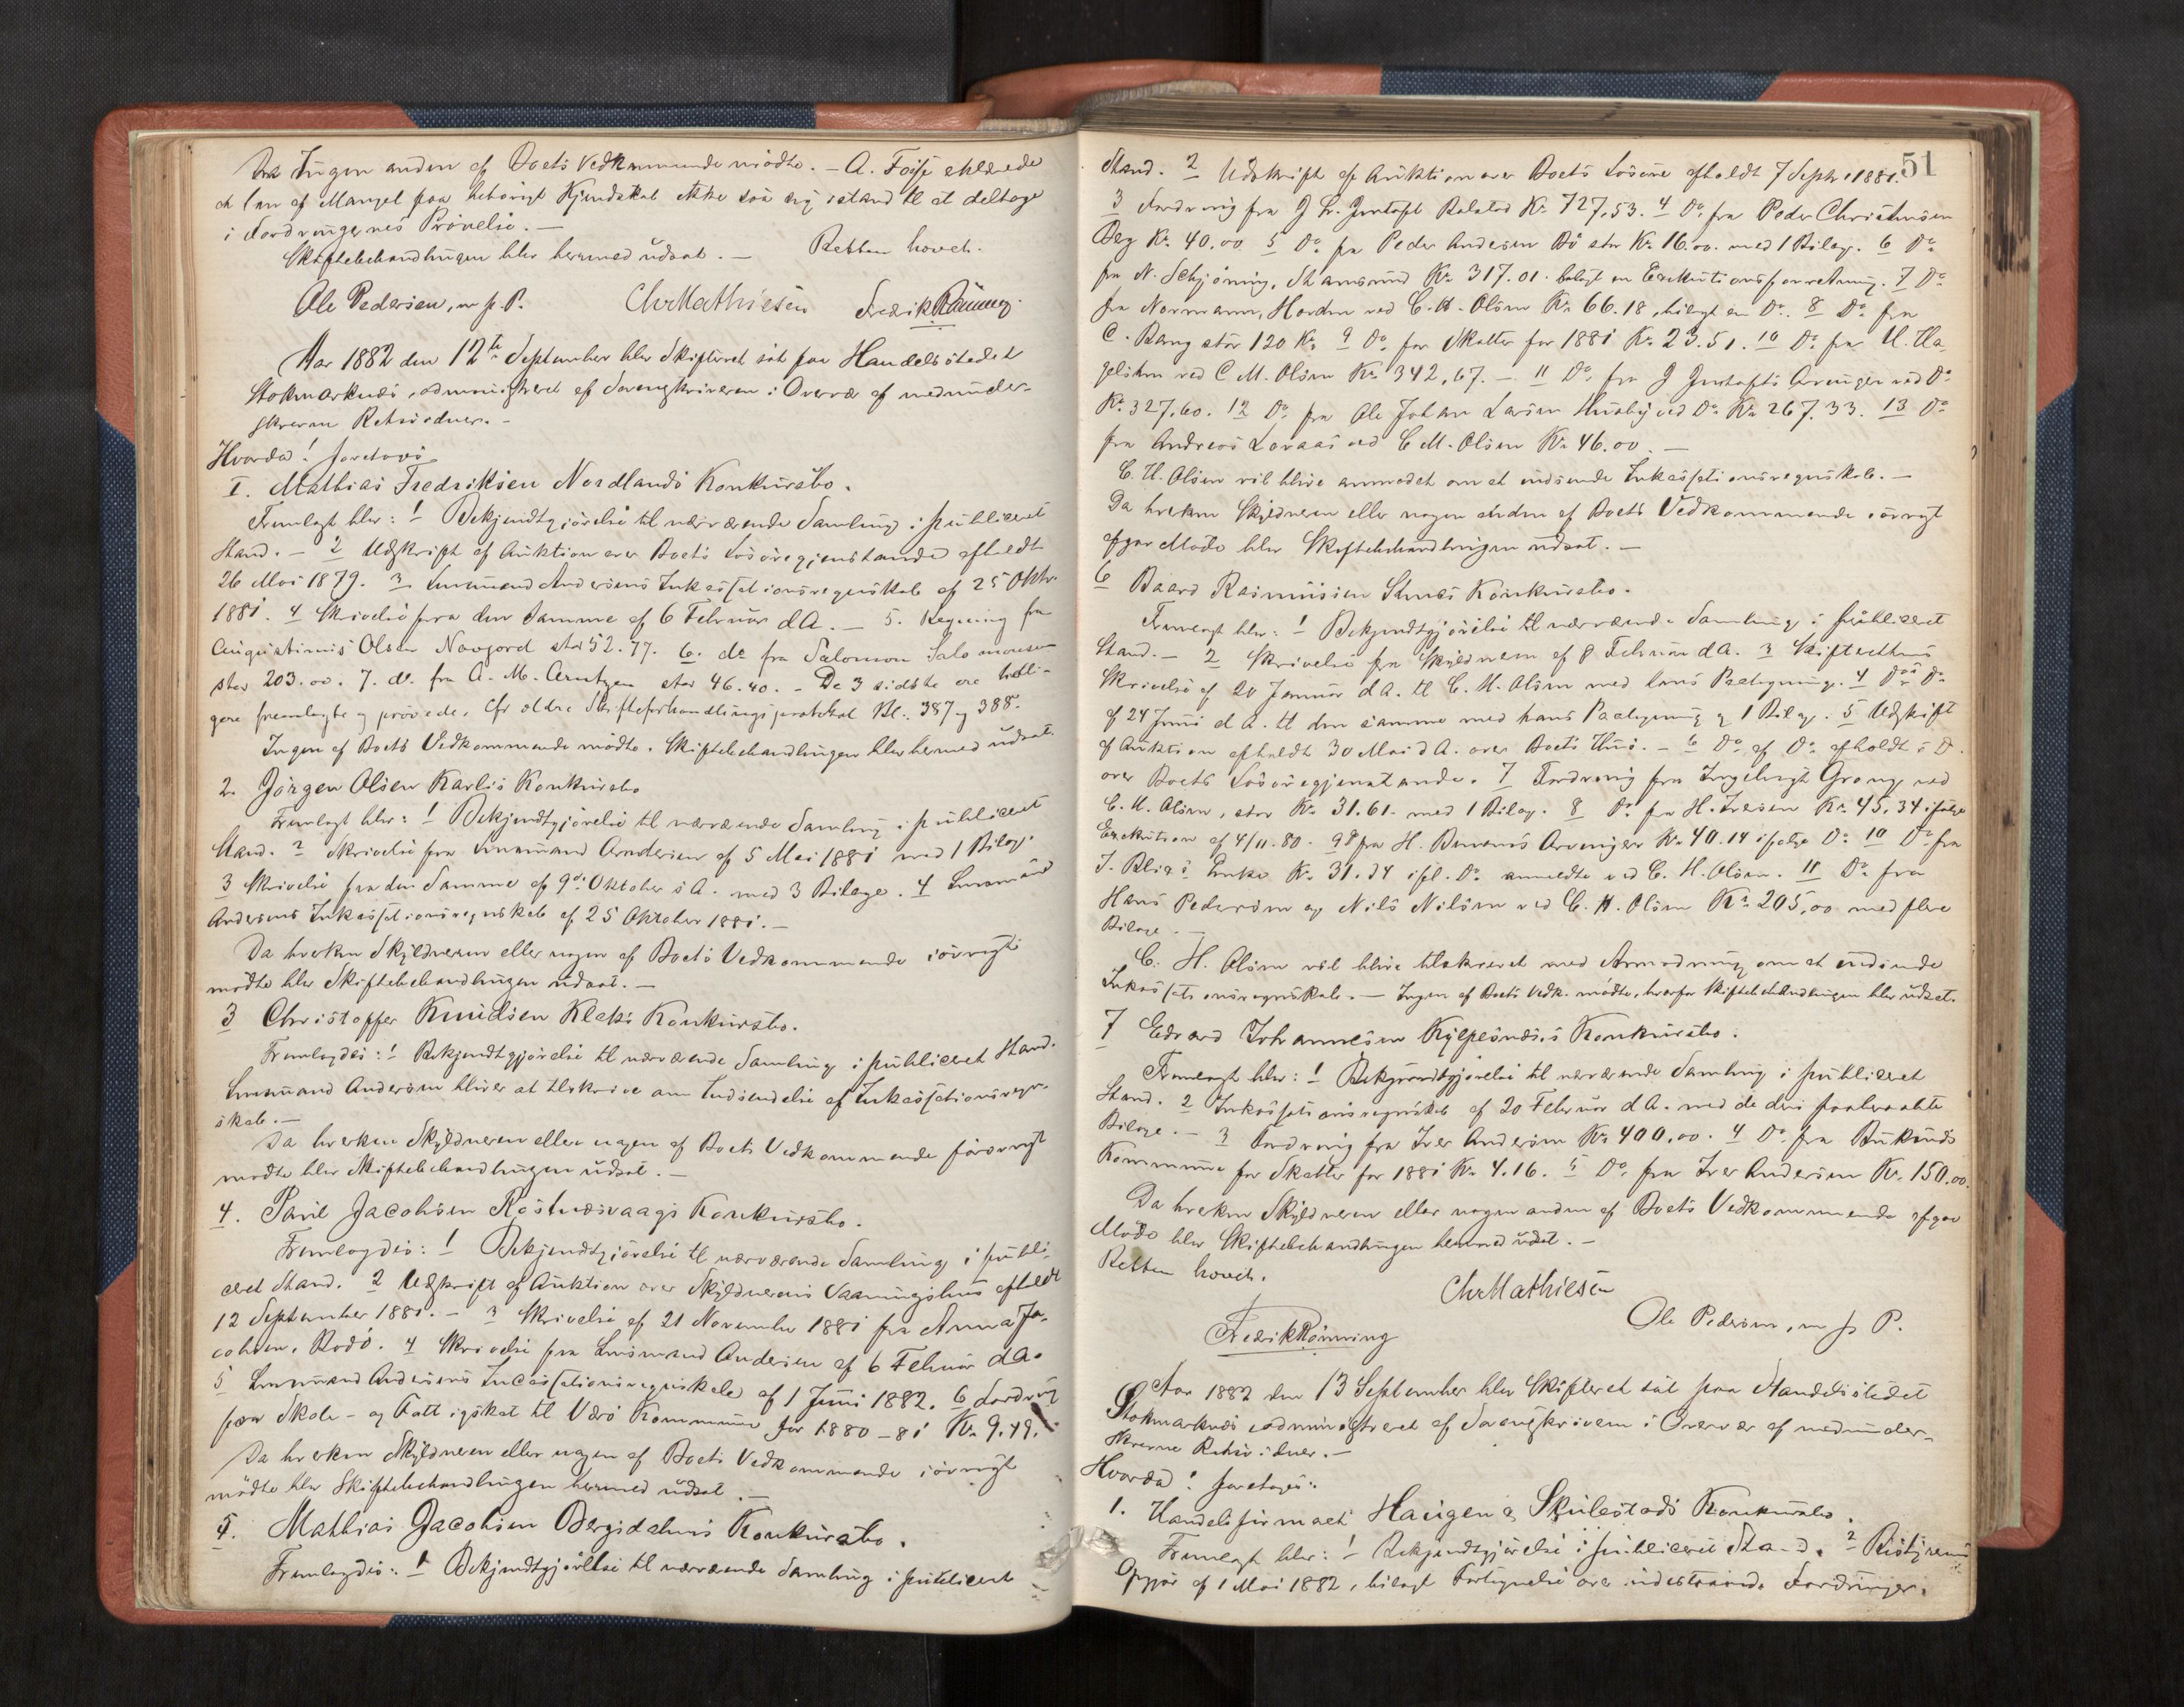 Da Ingen anden af Boets Vedkommende mødte. – A. Foisse erklærede
at han af Mangel paa behørigt Kjendskab ikke saa sig istand til at deltage
i Fordringernes Prøvelse. –
Skiftebehandlingen blev hermed udsat. – Retten hævet.
Ole Pedersen, m. p. P. Chr Mathiesen Fredrik Rönning
Aar 1882 den 12te September blev Skifteret sat paa Handelsstedet
Stokmarknæs, administreret af Sorenskriveren i Overvær af medunder-
skrevne Retsvidner. –
Hvorda! foretoges
I. Mathias Fredriksen Nordlands Konkursbo.
Fremlagt blev: 1 Bekjendtgjørelse til nærværende Samling i publiceret
Stand. – 2 Udskrift af Auktion over Boets Løsøregjenstande afholdt
26 Mai 1879. 3 Lensmand Andersens Inkassationsregnskab af 25 Oktr.
1881. 4 Skrivelse fra den Samme af 6 Februar d A. – 5. Regning fra
Augustinus Olsen Navgord stor 52.77. 6. do fra Salomon Salomonsen
stor 203.00. 7. do. fra A. M. Arntzen stor 46.40. – De 3 sidste ere tidli-
gere fremlagte og prøvede, cfr ældre Skifteforhandlingsprotokol Bl. 387 og 388.
Ingen af Boets Vedkommende mødte. Skiftebehandlingen blev hermed udsat.
2. Jørgen Olsen Karlis Konkursbo
Fremlagt blev: 1 Bekjendtgjørelse til nærværende Samling i publiceret
Stand. 2 Skrivelse fra Lensmand Andersen af 5 Mai 1881 med 1 Bilag.
3 Skrivelse fra den Samme af 9de Oktober s A. med 3 Bilage. 4 Lensmand
Andersens Inkassationsregnskab af 25 Oktober 1881. –
Da hverken Skyldneren eller nogen af Boets Vedkommende iøvrigt
mødte blev Skiftebehandlingen udsat. –
3 Christoffer Knudsen Kleks Konkursbo.
Fremlagdes: 1 Bekjendtgjørelse til nærværende Samling i publiceret Stand.
Lensmand Andersen bliver at tilskrive om Indsendelse af Inkassationsregn-
skab. –
Da hverken Skyldneren eller nogen af Boets Vedkommende forøvrigt
mødte blev Skiftebehandlingen udsat. –
4. Paul Jacobsen Røstnæsvaags Konkursbo.
Fremlagdes: 1 Bekjendtgjørelse til nærværende Samling i publi-
ceret Stand. 2 Udskrift af Auktion over Skyldnerens Vaaningshus afholdt
12 September 1881. – 3 Skrivelse af 21 November 1881 fra Anna Ja-
cobsen, Bodø. 4 Skrivelse fra Lensmand Andersen af 6 Februar d A.
5 Lensmand Andersens Incassationsregnskab af 1 Juni 1882. 6 Fordring
paa Skole- og Fattigskat til Værø Kommune for 1880–81 Kr. 9.49.
Da hverken Skyldneren eller nogen af Boets Vedkommende iøvrigt
mødte blev Skiftebehandlingen hermed udsat. –
5. Mathias Jacobsen Bergsdalens Konkursbo.
Fremlagdes: 1 Bekjendtgjørelse til nærværende Samling i publiceret
51
Stand. 2 Udskrift af Auktion over Boets Løsøre afholdt 7 Septbr 1881.
3 Fordring fra J Lr. Jentoft Balstad Kr. 727.53. 4 Do fra Peder Christensen
Berg Kr. 40.00 5 Do fra Peder Andersen Bø stor Kr. 16.00. med 1 Bilag. 6 Do
fra N. Schjöning, Stamsund Kr. 317.01. bilagt en Exekutionsforretning. 7 Do
fra Normann, Horden ved C. H. Olsen Kr. 66.18, bilagt en Do. 8 Do fra
C. Bang stor 120 Kr. 9 Do for Skatter for 1881 Kr. 23.51. 10 Do fra
ved C M. Olsen Kr. 342,67. – 11 Do fra J Jentofts Arvinger ved Do
Kr. 327,60. 12 Do fra Ole Johan Larsen Husby ved Do Kr. 267.33. 13 Do
fra Andreas Lovaas ved C M. Olsen Kr. 46.00. –
C. H. Olsen vil blive anmodet om at indsende Inkassationsregnskab. –
Da hverken Skyldneren eller nogen anden af Boets Vedkommende iøvrigt
afgav Møde blev Skiftebehandlingen udsat. –
6 Baard Rasmussen Konkursbo.
Fremlagt blev: 1 Bekjendtgjørelse til nærværende Samling i publiceret
Stand. – 2 Skrivelse fra Skyldneren af 8 Februar d A. 3 Skifterettens
Skrivelse af 20 Januar d A. til C. H. Olsen med hans Paategning. 4 Do's Do
af 24 Juni d A. til den samme med hans Paategning og 1 Bilag. 5 Udskrift
af Auktion afholdt 30 Mai d A. over Boets Hus. – 6 Do af Do afholdt s D.
over Boets Løsøregjenstande. 7 Fordring fra Ingebrigt Grong ved
C. H. Olsen, stor Kr. 31.61. med 1 Bilag. 8 Do fra H. Iversen Kr. 45.34 ifølge
Exekution af 4/11. 80. 9 Do fra H. Arvinger Kr. 40.14 ifølge Do. 10 Do fra
J. Blix's Enke Kr. 31.34 iføl. Do anmeldte ved C. H. Olsen. 11 Do fra
Hans Pedersen og Nils Nilsen ved C. H. Olsen Kr. 205,00 med flere
Bilage. –
C. H. Olsen vil blive tilskrevet med Anmodning om at indsende
Inkassationsregnskab. – Ingen af Boets Vedk. mødte, hvorfor Skiftebehandlingen blev udsat.
7 Edvard Johannesen Kylpesnæs's Konkursbo.
Fremlagt blev: 1 Bekjendtgjørelse til nærværende Samling i publiceret
Stand. 2 Inkassationsregnskab af 20 Februar d A. med de deri paaberaabte
Bilage. – 3 Fordring fra Iver Andersen Kr. 400,00. 4 Do fra Buksnæs
Kommune for Skatter for 1881 Kr. 4.16. 5 Do fra Iver Andersen Kr. 150.00.
Da hverken Skyldneren eller nogen anden af Boets Vedkommende afgav
Møde blev Skiftebehandlingen hermed udsat. –
Retten hævet.
Chr Mathiesen
Fredrik Rönning Ole Pedersen, m p P.
Aar 1882 den 13 September blev Skifteret sat paa Handelsstedet
Stokmarknæs administreret af Sorenskriveren i Overvær af medunder-
skrevne Retsvidner. –
Hvorda! foretoges:
1. Handelsfirmaet Haugen & Skulestads Konkursbo.
Fremlagt blev: 1 Bekjendtgjørelse i publiceret Stand. 2 Bestyrerens
Opgjør af 1 Mai 1882, bilagt Fortegnelse over udestaaende Fordringer.